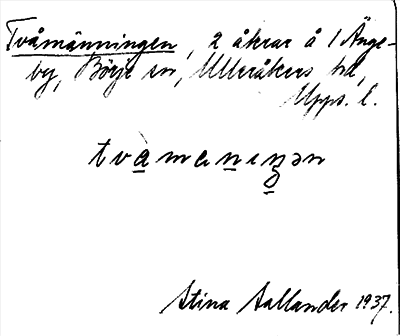 Tvåmänningen, 2 åkrar å 1 Änge-
by, Börje sn, Ulleråkers hd,
Upps. l.
tvamenıŋən
Stina Sallander 1937.